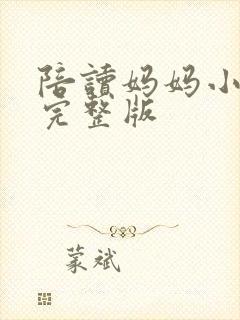 陪讀妈妈小
完整版
蒙斌